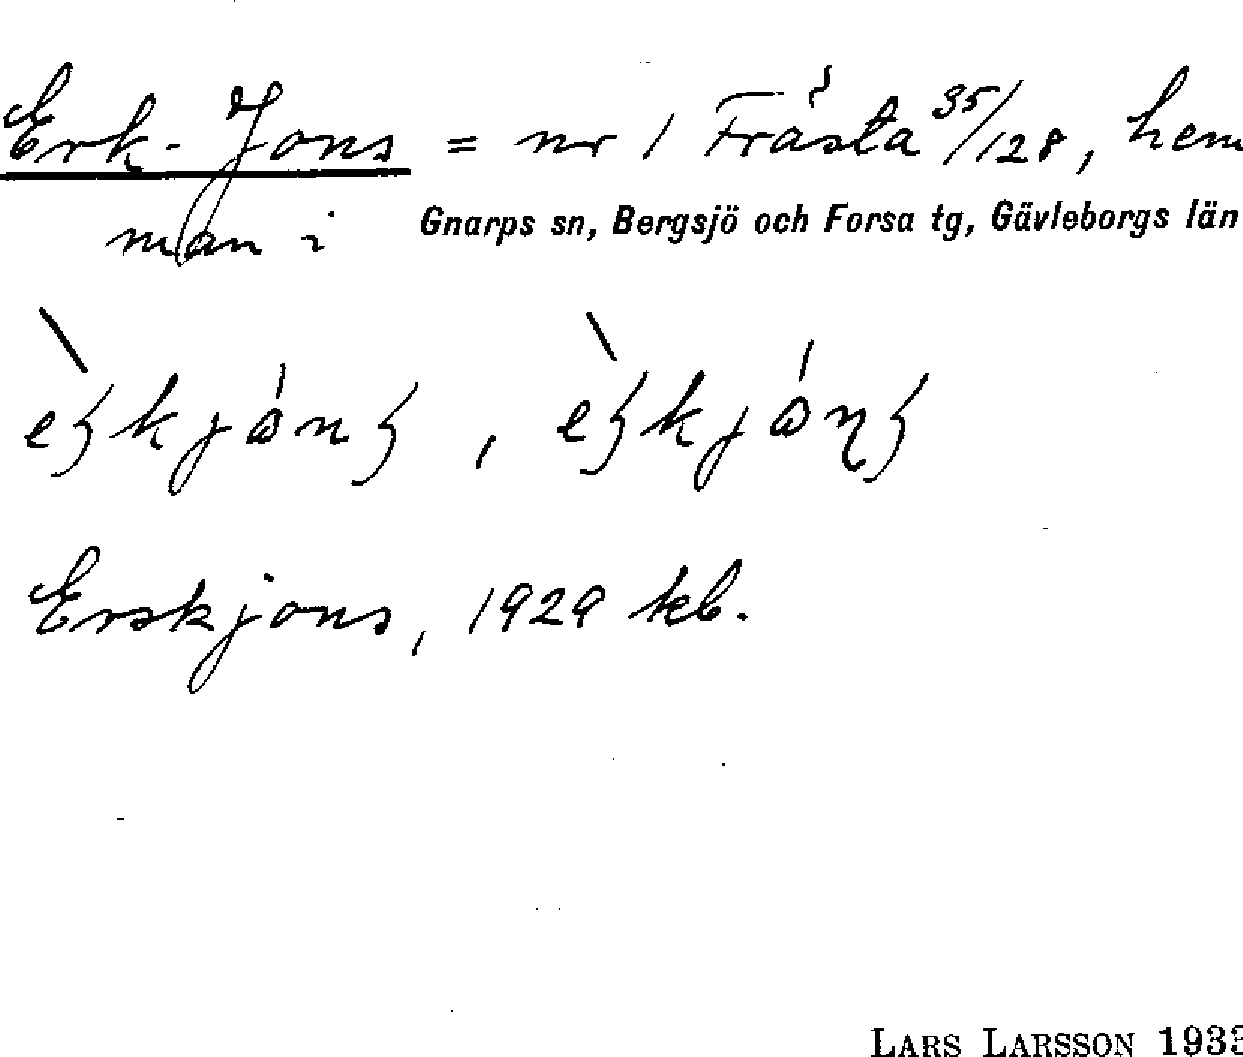 Erk-Jons = nr 1 Frästa 35/128, hem
man i Gnarps sn, Bergsjö och Forsa tg, Gävleborgs län
Erskjons, 1929 kb.
LARS LARSSON 1933